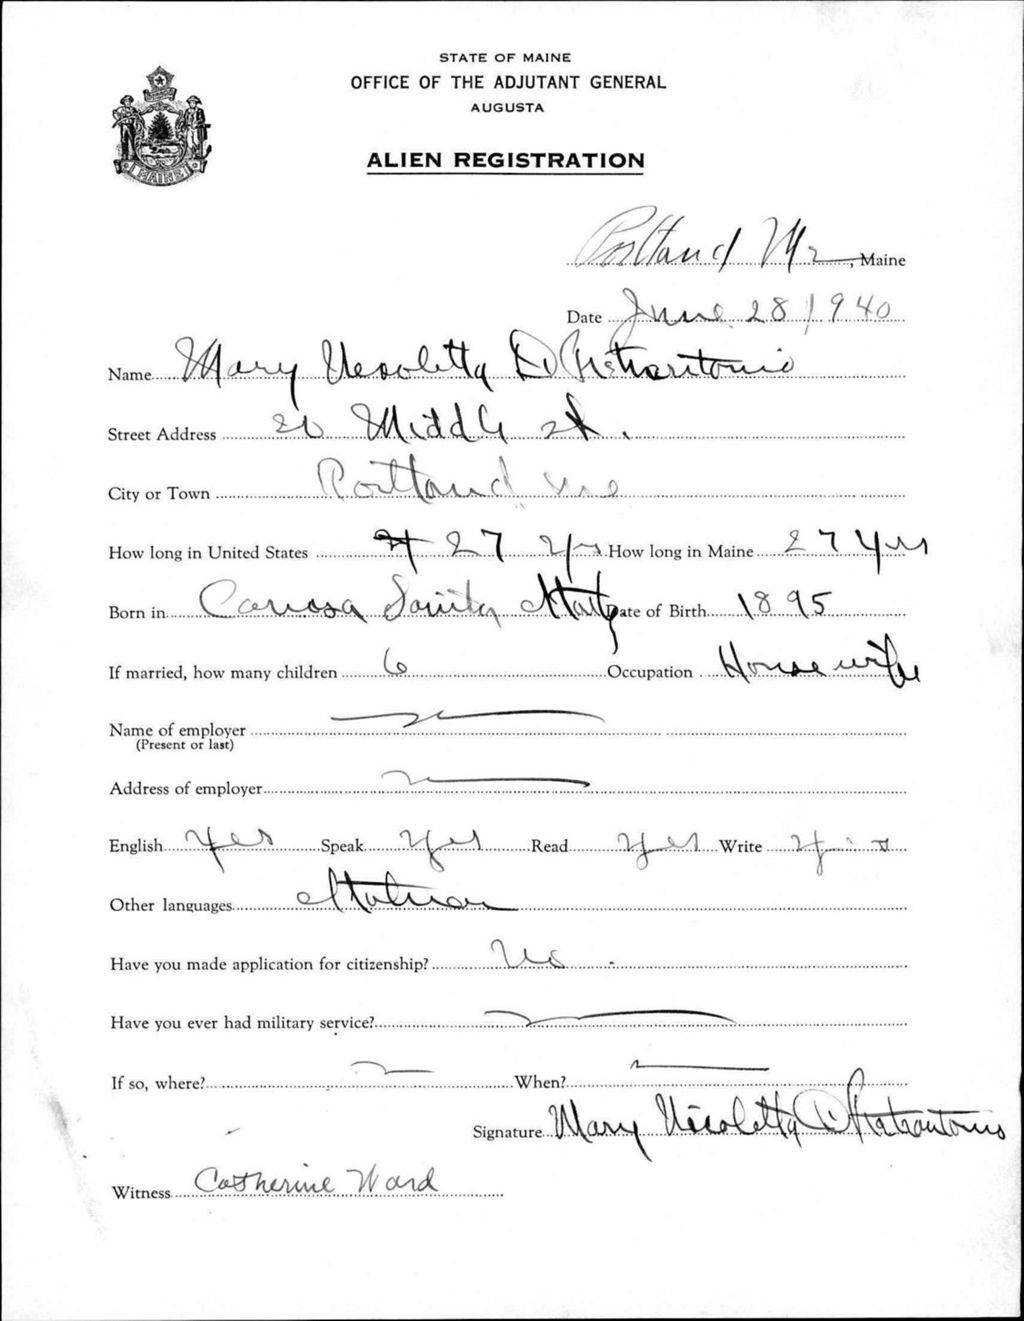 STATE OF MAINE
OFFICE OF THE ADJUTANT GENERAL
AUGUSTA
ALIEN REGISTRATION
MAINE
Portland Me, Maine
Date June 28 1940
Name Mary Nicoletta Di Pietrantonio
Street Address Middle st.
City or Town Portland Me
How long in United States 27 yrs How long in Maine 27 yrs
Born in Italy Date of Birth 1895
If married, how many children 6 Occupation Housewife
Name of employer
(Present or last)
Address of employer
English Yes Speak Yes Read Yes Write Yes
Other languages Italian
Have you made application for citizenship? No
Have you ever had military service?
If so, where? When?
Signature Mary Nicoletta Di Pietrantonio
Witness Catherine Ward